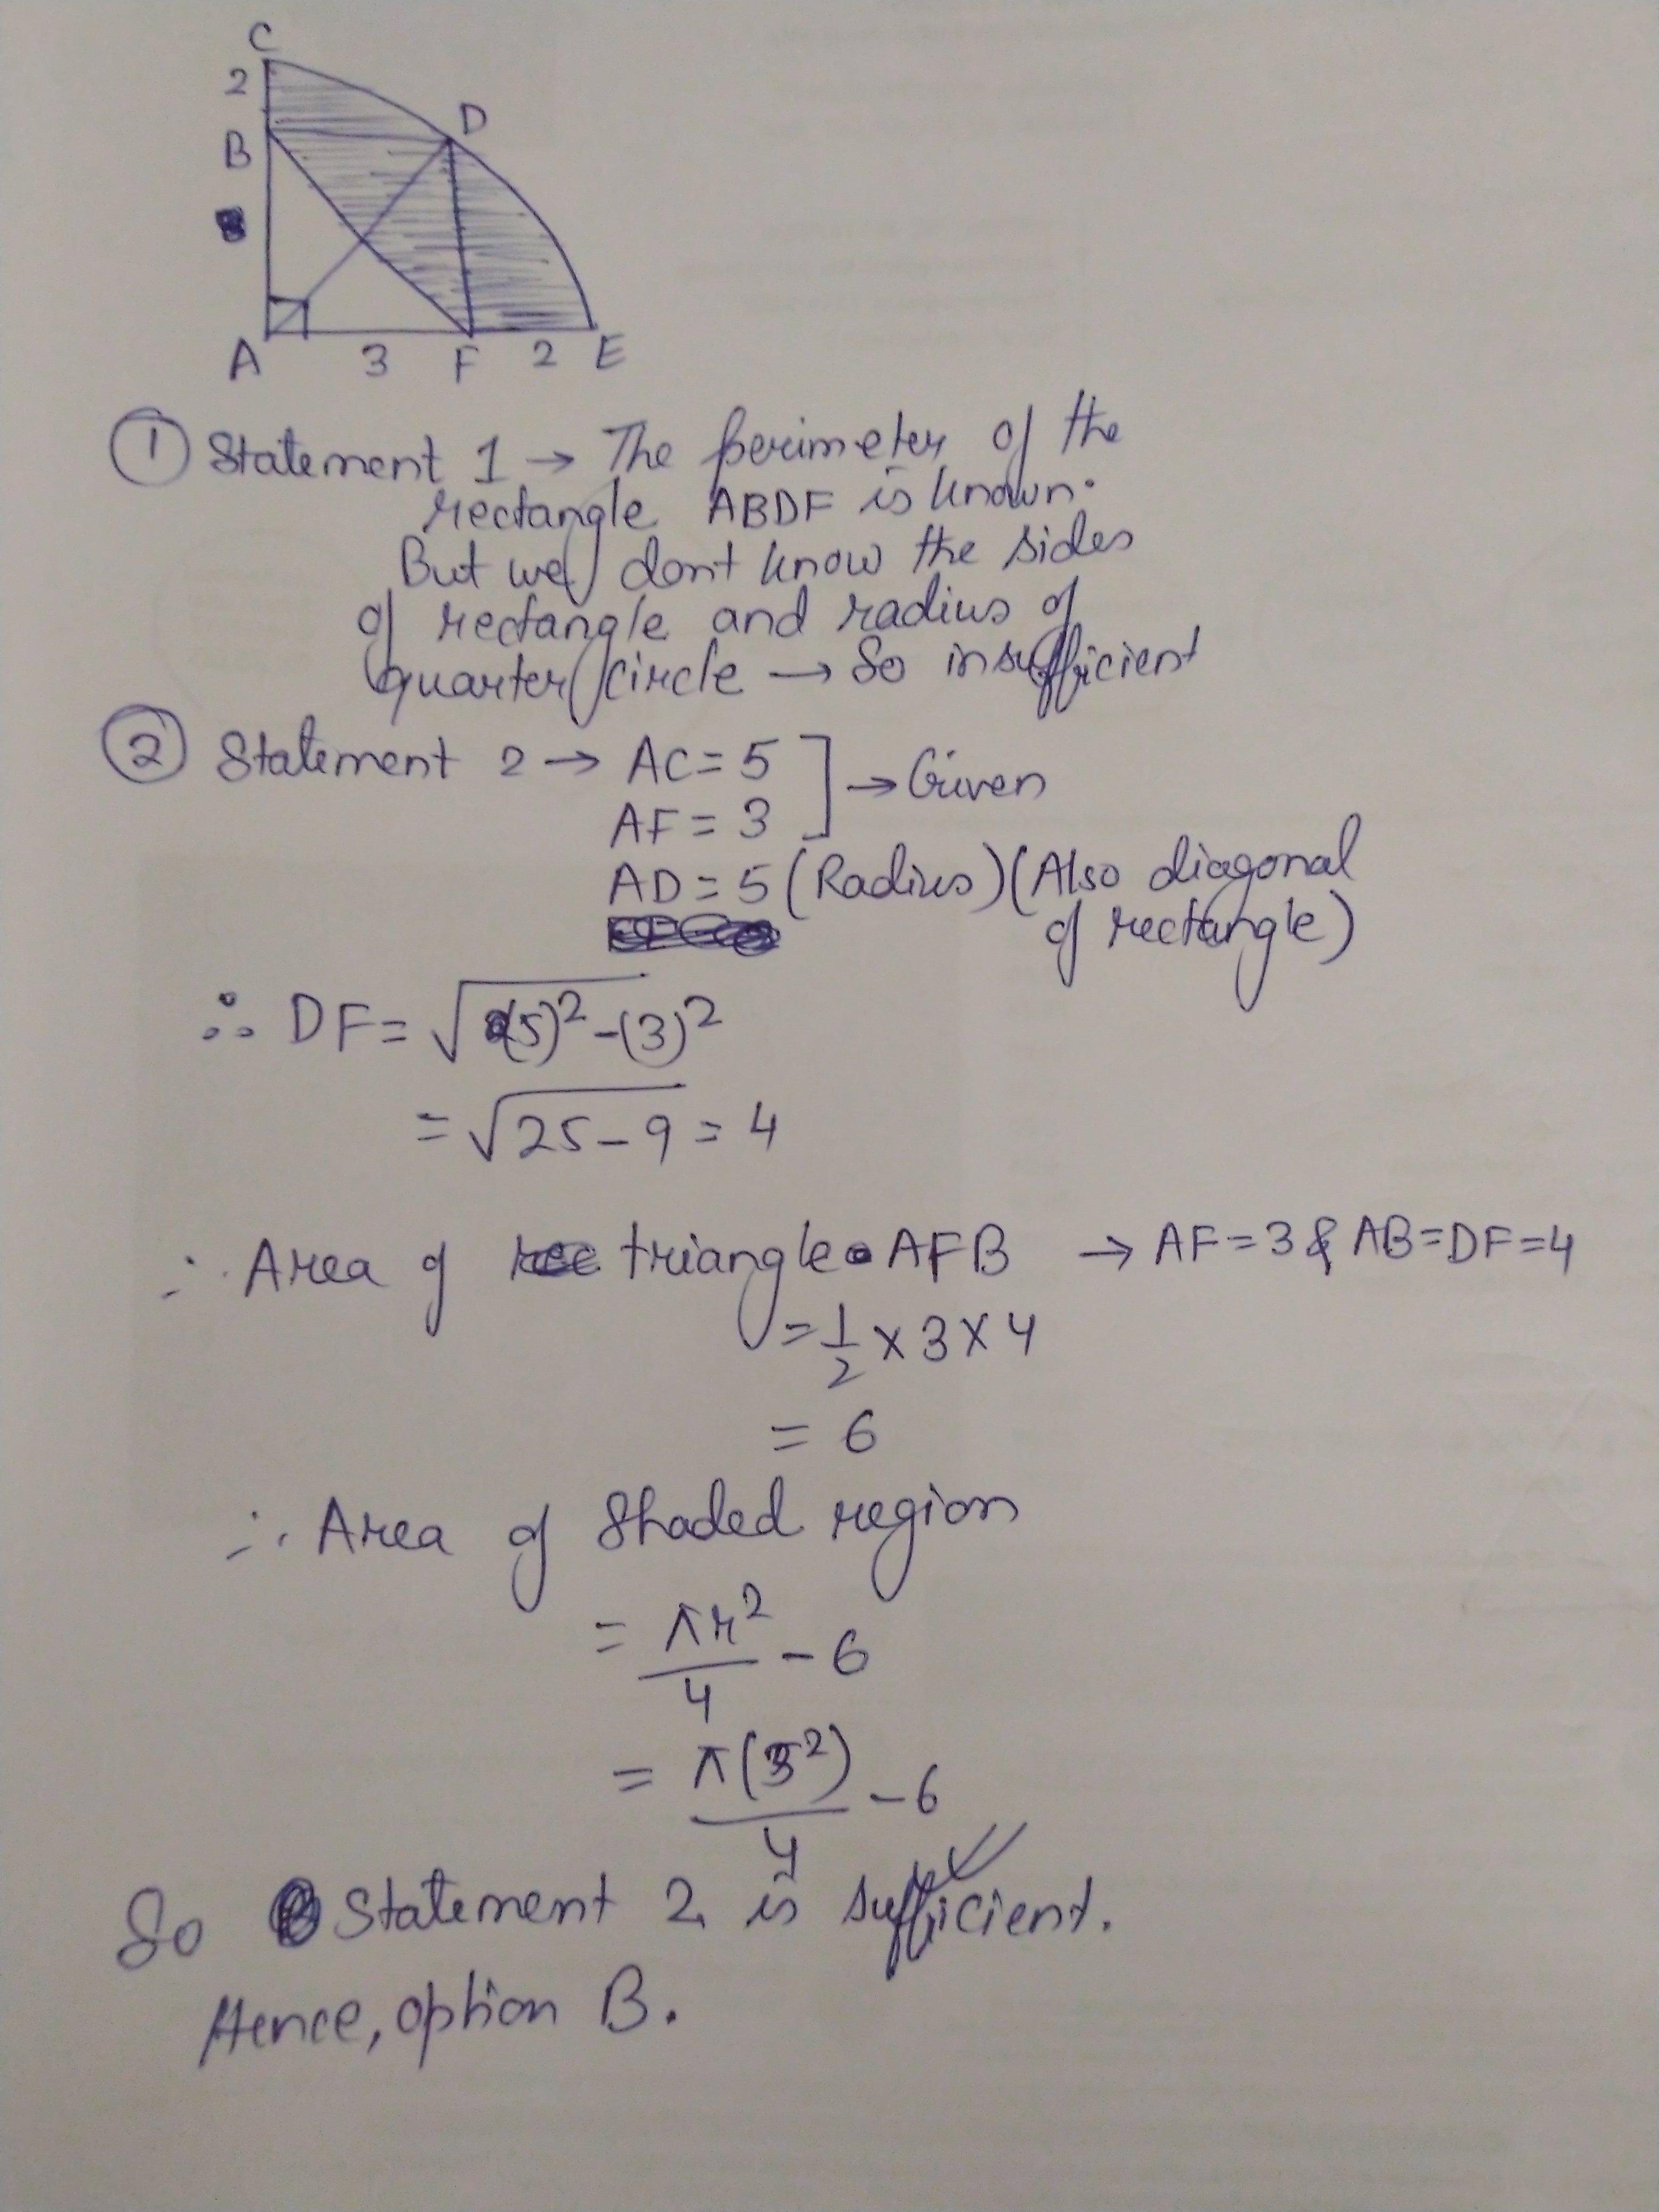 C
2
D
B
A 3 F 2 E
① Statement 1 → The perimeter of the
rectangle ABDF is known.
But we don't know the sides
of rectangle and radius of
quarter circle → So insufficient
② Statement 2 → AC = 5 ] → Given
AF = 3
AD = 5 (Radius) (Also diagonal
of rectangle)
∴ DF = √(5)² - (3)²
= √25 - 9 = 4
∴ Area of triangle AFB → AF = 3 & AB = DF = 4
= 1/2 × 3 × 4
= 6
∴ Area of Shaded region
= πr²/4 - 6
= π(5²)/4 - 6
So Statement 2 is sufficient.
Hence, option B.